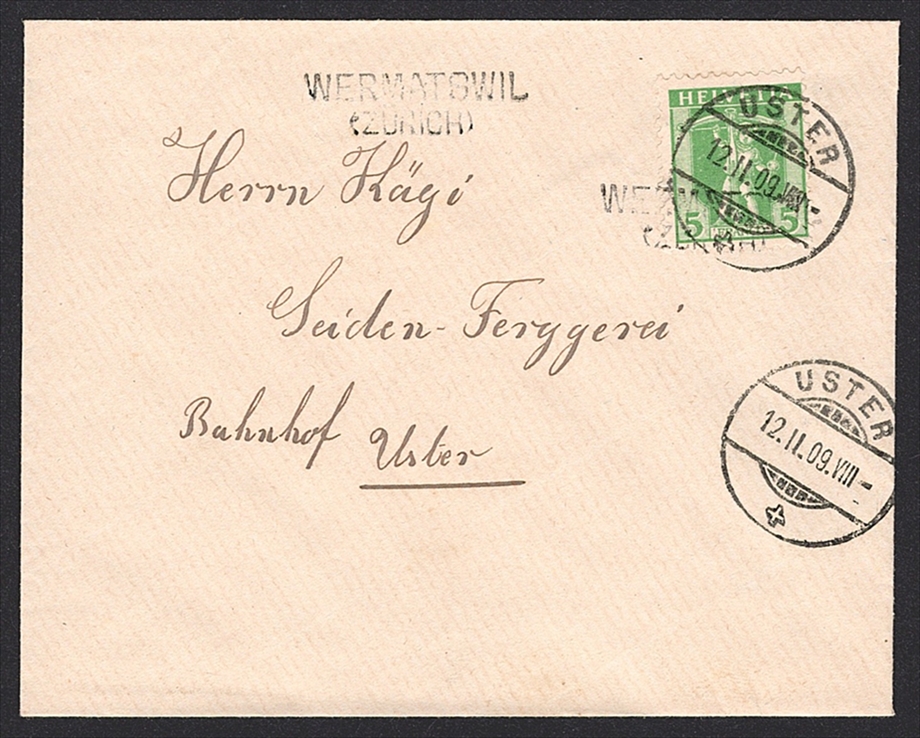 WERMATSWIL
(ZÜRICH)
HELVETIA
USTER
12.II.09.VIII-
5 5
Herrn Kägi
Seiden-Ferggerei
Bahnhof Uster
USTER
12.II.09.VIII-